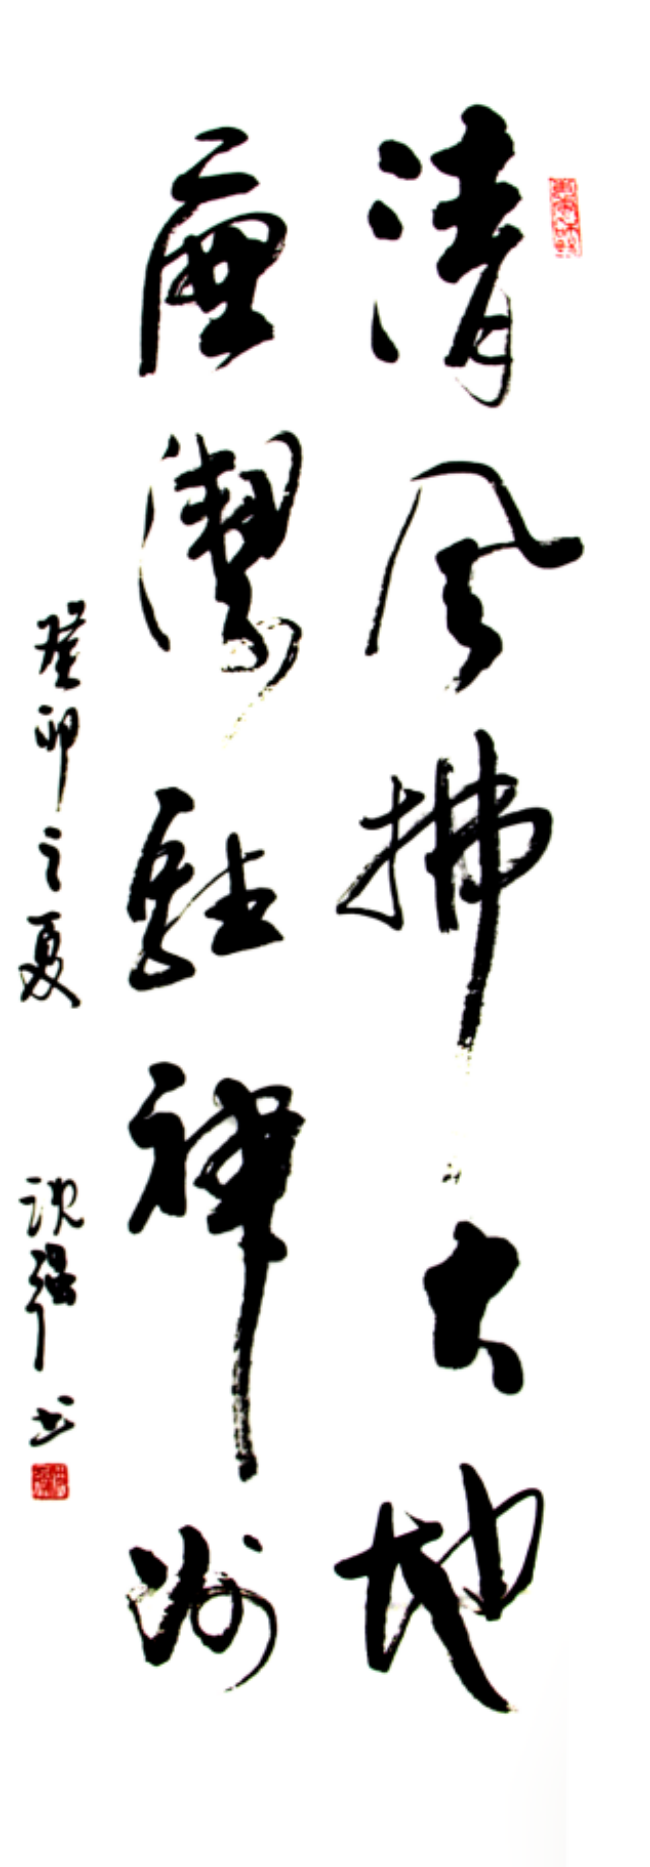 清风拂大地
廉潔駐神州
癸卯之夏
沈強书